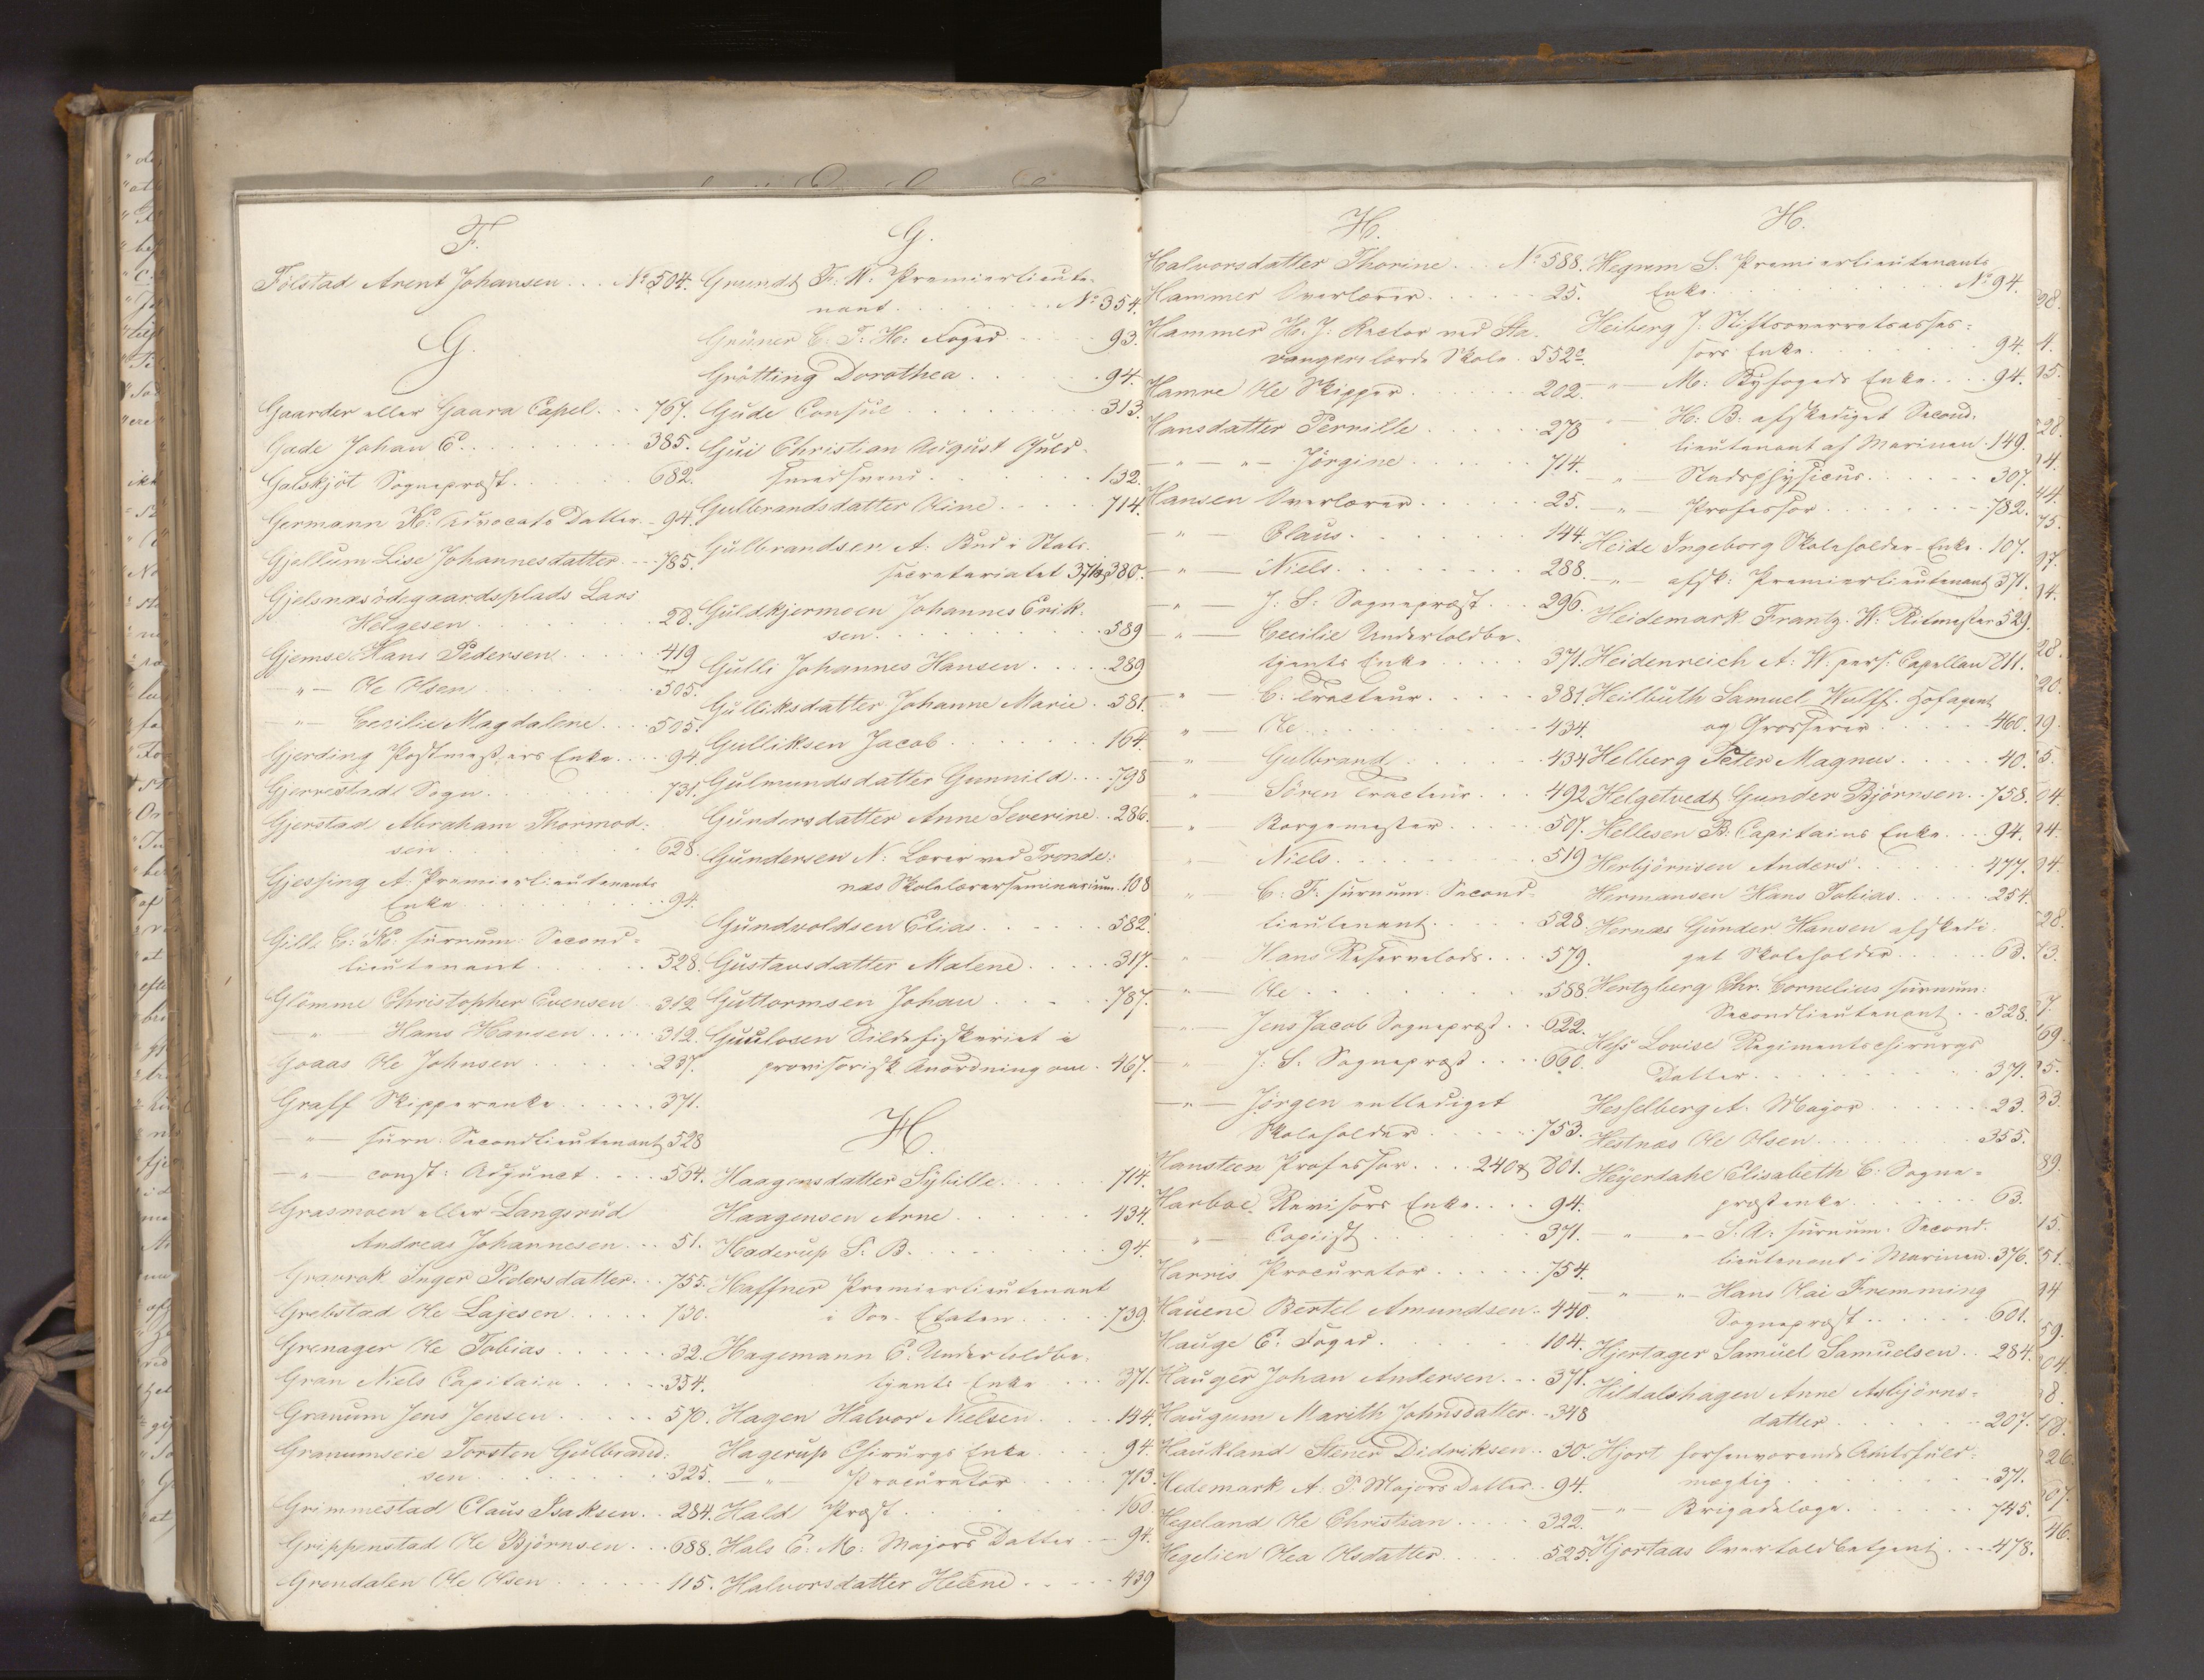 F.
Fölstad Arent Johansen . . . No 504.
G.
Gaarder eller Gaara Capel . . . 767.
Gade Johan C. . . . 385.
Galskjöt Sognepræst . . . 682.
Germann K: Advocats Datter . . 94.
Gjellum Lise Johannesdatter . . . 785.
Gjelsnæsödegaardsplads Lars
Helgesen . . . 28.
Gjemse Hans Pedersen . . . 419
—"— Ole Olsen . . . 505.
—"— Cecilie Magdalene . . . 505.
Gjerding Postmesters Enke . . . 94.
Gjerrestads Sogn . . . 731.
Gjerstad Abraham Thormod:
sen . . . 628.
Gjessing A: Premierlieutenants
Enke . . . 94.
Gill C: K: surnum: Second=
lieutenant . . . 528.
Glömme Christopher Evensen . . 312
—"— Hans Hansen . . . 312.
Goaas Ole Johnsen . . . 237.
Graff Skipperenke . . . 371.
—"— surn: Secondlieutenant 528
—"— const: Adjunct . . . 564.
Grasmoen eller Langsrud
Andreas Johannesen . . . 51.
Gravrok Inger Pedersdatter . . . 755.
Grebstad Ole Lajesen . . . 730.
Grenager Ole Tobias . . . 32.
Gran Niels Capitain . . . 354.
Granum Jens Jensen . . . 570.
Granumseie Torsten Gulbrand:
sen . . . 325.
Grimmestad Claus Isaksen . . 284.
Grippenstad Ole Björnsen . . . 688.
Grendalen Ole Olsen . . . 115.
G.
Grundt F: W: Premierlieute-
nant . . . No 354.
Grüner C: F: H: Foged . . . 93.
Grötting Dorothea . . . 94.
Gude Consul . . . 313.
Gui Christian August Guld-
smedsvend . . . 132.
Gulbrandsdatter Kine . . . 714.
Gulbrandsen A: Bud i Stats
secretariatet 371 & 380.
Guldkjermoen Johannes Erik-
sen . . . 589
Gulli Johannes Hansen . . . 289
Gulliksdatter Johanne Marie . 581.
Gulliksen Jacob . . . 164.
Gulmundsdatter Gunnild . . . 798
Gundersdatter Anne Severine . . 286.
Gundersen N: Lærer ved Tronde:
næs Skolelærerseminarium . 108
Gundvoldsen Elias . . . 582.
Gustavsdatter Malene . . . 317.
Guttormsen Johan . . . 787.
Guulosen Sildefiskeriet i
provisorisk Anordning om . 467.
H.
Haagensdatter Sybille . . . 714.
Haagensen Arne . . . 434.
Haderup S. B. . . . 94.
Haffner Premierlieutenant
i Søe-Etaten . . . 739.
Hagemann C: Undertoldbe-
tjents Enke . . . 371.
Hagen Halvor Nielsen . . . 144.
Hagerup Chirurgs Enke . . . 94.
—"— Procurator . . . 713.
Hald Præst . . . 160.
Hals C: M: Majors Datter . . 94.
Halvorsdatter Helene . . . 439
H.
Halvorsdatter Thorine . . No 588.
Hammer Overlærer . . . 25.
Hammer H. J: Rector ved Sta-
vanger lærde Skole . 552c.
Hamre Ole Skipper . . . 202.
Hansdatter Pernille . . . 278
—"—"— Jörgine . . . 714.
Hansen Overlærer . . . 25.
—"— Claus . . . 144.
—"— Niels . . . 288.
—"— J: S: Sognepræst . . . 296.
—"— Cecilie Undertoldbe-
tjents Enke . . . 371.
—"— C: Tracteur . . . 381.
—"— Ole . . . 434.
—"— Gulbrand . . . 434
—"— Sören Tracteur . . . 492
—"— Borgemester . . . 507.
—"— Niels . . . 519
—"— C: F: surnum: Second-
lieutenant . . . 528
—"— Hans Reservelods . . . 579.
—"— Ole . . . 588.
—"— Jens Jacob Sognepræst . . 622.
—"— J: S: Sognepræst . . . 660.
—"— Jörgen entlediget
Skoleholder . . . 753.
Hansteen Professor . . . 240 & 801.
Harboe Revisors Enke . . . 94.
—"— Copiist . . . 371.
Harris Procurator . . . 754.
Hauene Bertel Amundsen . . 440.
Hauge C: Foged . . . 104.
Hauger Johan Andersen . . . 371.
Haugum Marith Johnsdatter . . 348
Haukland Stener Didriksen . . 30.
Hedemark A: P: Majors Datter . . 94.
Hegeland Ole Christian . . . 322.
Hegelien Olea Olsdatter . . . 525.
H.
Hegrem S: Premierlieutenants
Enke . . . No 94.
Heiberg J: Stiftsoverretsasses=
sors Enke . . . 94.
—"— M: Byfogeds Enke . . . 94.
—"— H: B: afskediget Second-
lieutenant af Marinen . 149.
—"— Stadsphysicus . . . 307.
—"— Professor . . . 782.
Heide Ingeborg Skoleholder-Enke . 107.
—"— afsk: Premierlieutenant 371.
Heidemark Frantz W: Ritmester 529.
Heidenreich A: W: pers: Capellan 211.
Heilbuth Samuel Wulff Hofagent
og Grosserer . . . 460.
Helberg Peter Magnus . . . 40.
Helgetvedt Gunder Björnsen . . 758.
Hellesen B: Capitains Enke . . . 94.
Herbjörnsen Anders . . . 477.
Hermansen Hans Tobias . . . 254.
Hernæs Gunder Hansen afskedi-
get Skoleholder . . . 63.
Hertzberg Chr. Cornelius surnum:
Secondlieutenant . . 528.
Hess Lovise Regimentschirurgs
Datter . . . 371.
Hesselberg A: Major . . . 23.
Hestnæs Ole Olsen . . . 355.
Heyerdahl Elisabeth C. Sogne=
præstenke . . . 63.
—"—"— S. A: surnum: Second-
lieutenant i Marinen . 376.
—"—"— Hans Kai Fremming
Sognepræst . . . 601.
Hjertager Samuel Samuelsen . . 284.
Hildalshagen Anne Asbjörns=
datter . . . 207.
Hjort forhenværende Amtsfuld-
mægtig . . . 371.
—"— Brigadelæge . . . 745.
Hjortaas Overtoldbetjent . . . 478.